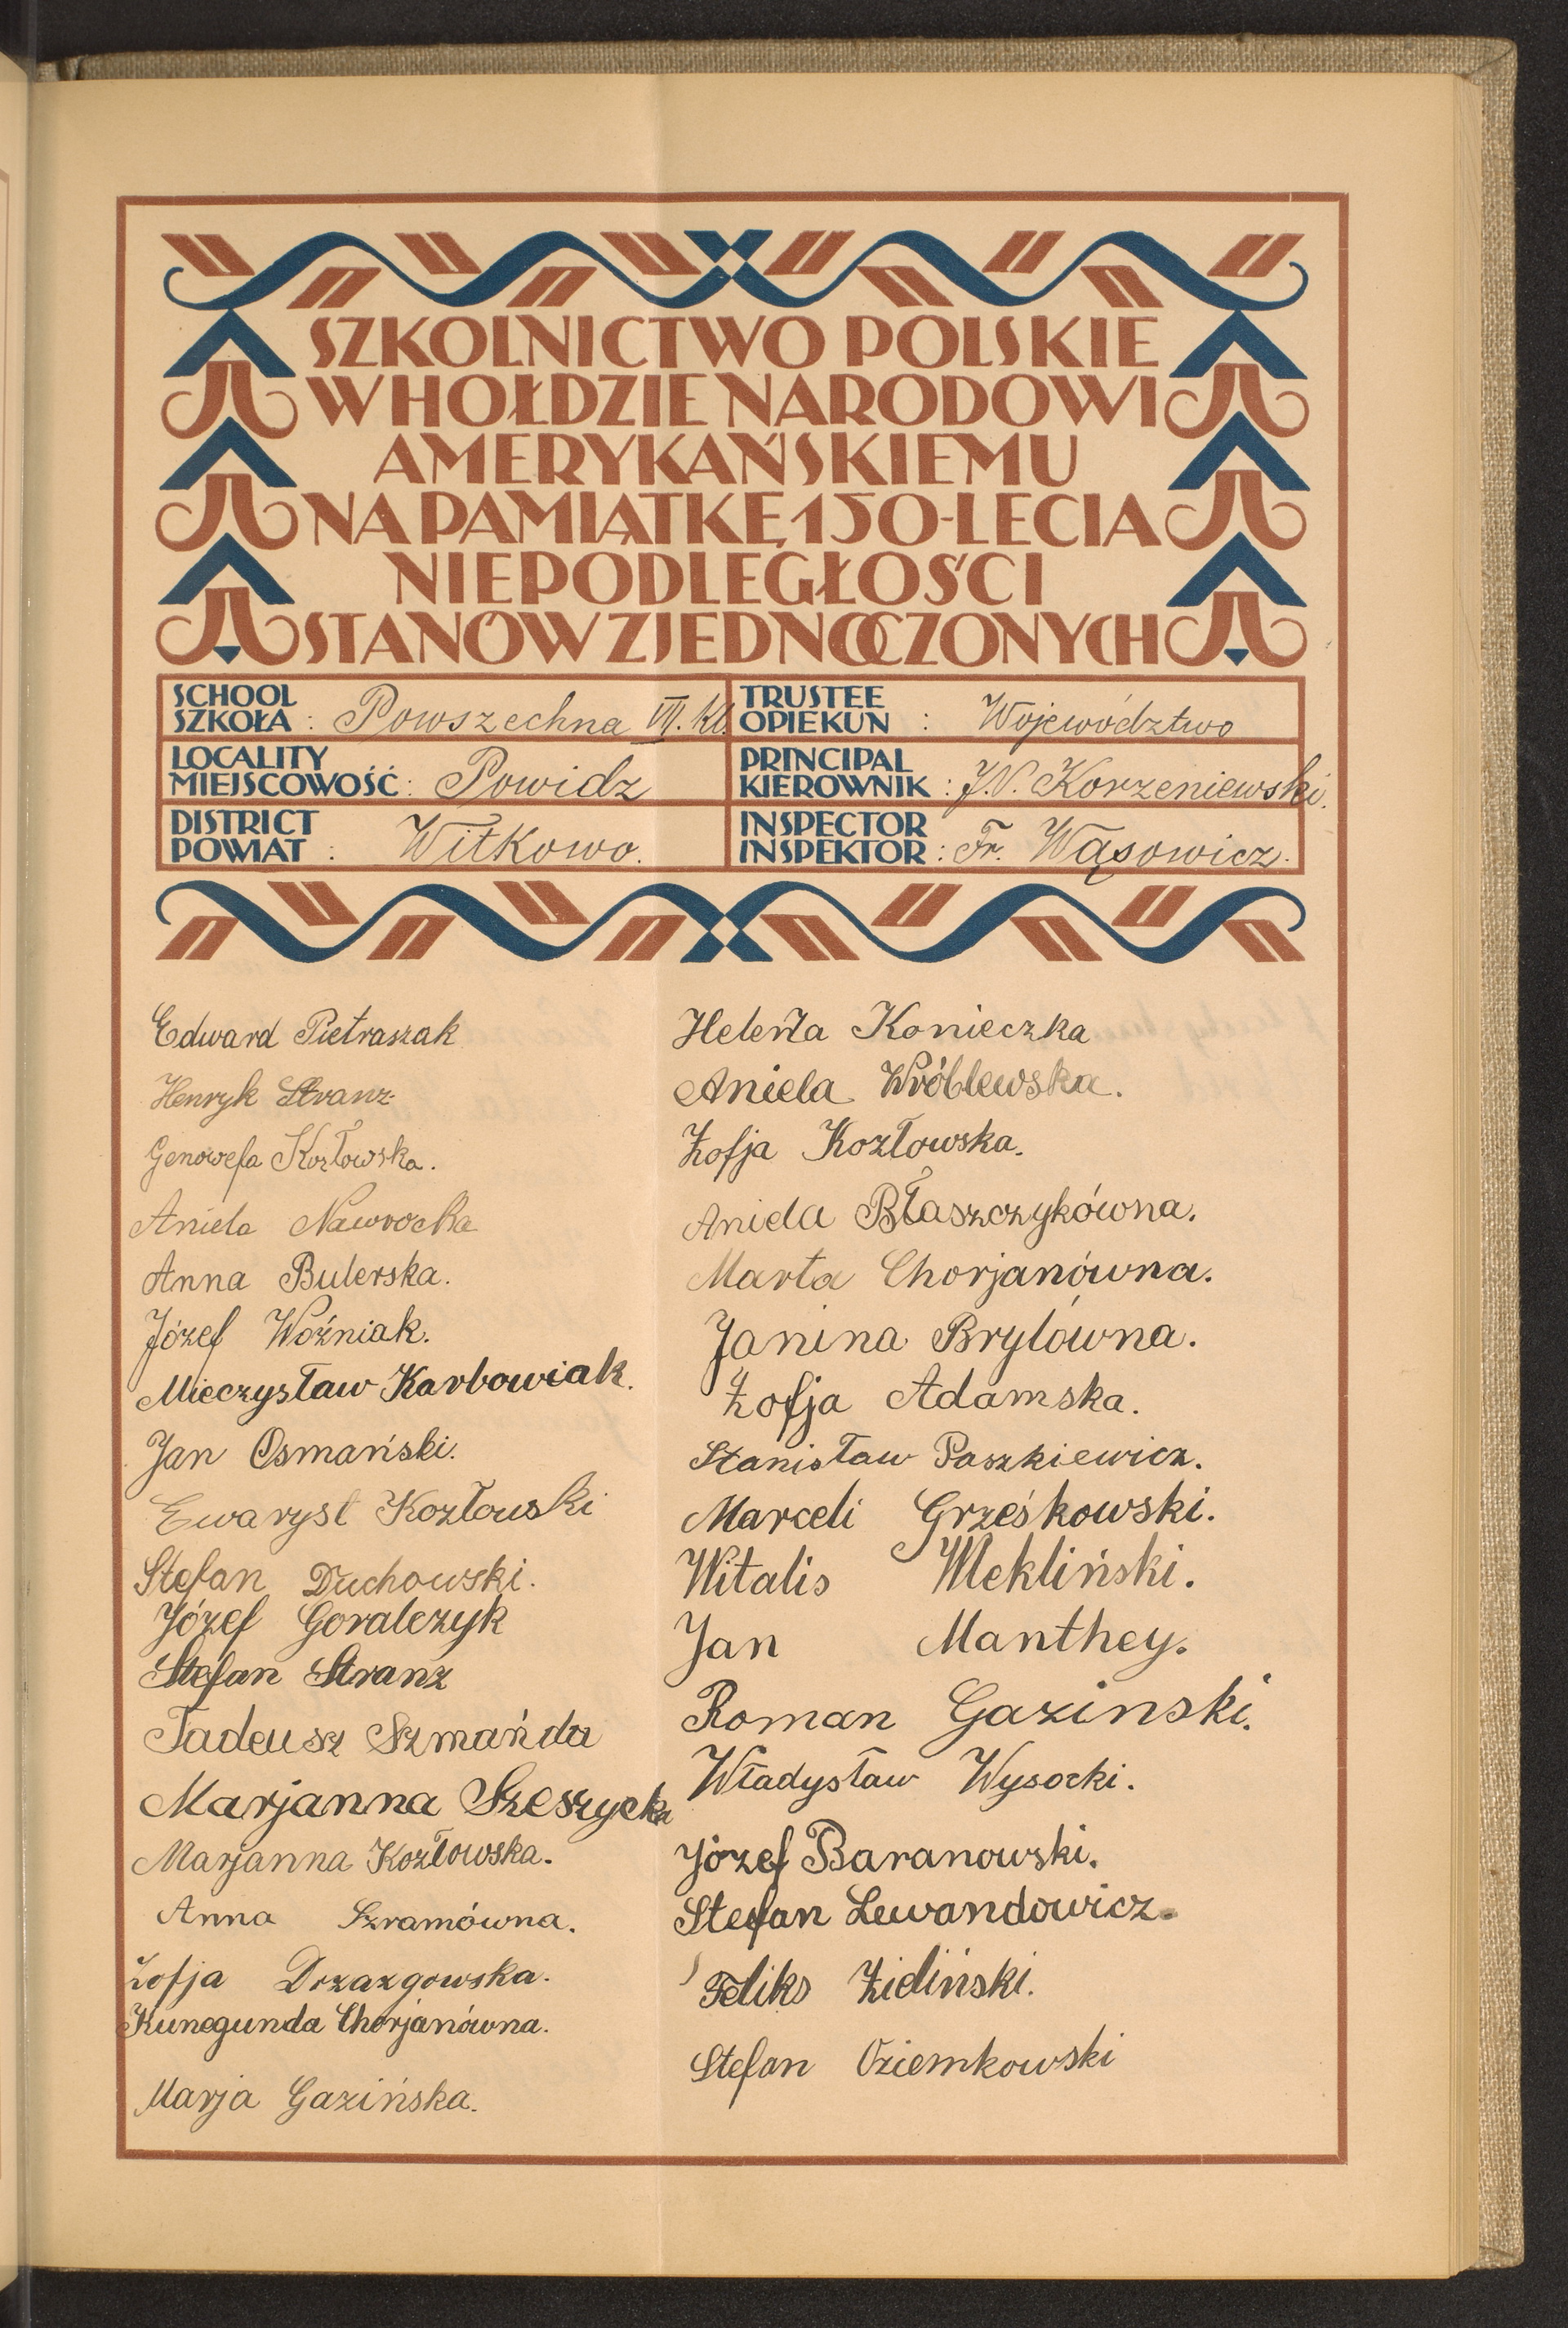 SZKOLNICTWO POLSKIE
W HOŁDZIE NARODOWI
AMERYKAŃSKIEMU
NA PAMIĄTKĘ 150-LECIA
NIEPODLEGŁOŚCI
STANÓW ZJEDNOCZONYCH
SCHOOL
SZKOŁA : Powszechna VII. kl.
TRUSTEE
OPIEKUN : Województwo
LOCALITY
MIEJSCOWOŚĆ : Powidz
PRINCIPAL
KIEROWNIK : J.N. Korzeniewski.
DISTRICT
POWIAT : Witkowo.
INSPECTOR
INSPEKTOR : Fr. Wąsowicz.
Edward Pietraszak
Henryk Stranz
Genowefa Kozłowska.
Aniela Nawrocka
Anna Bulerska.
Józef Woźniak.
Mieczysław Karbowiak.
Jan Osmański.
Ewaryst Kozłowski
Stefan Duchowski.
Józef Goralczyk
Stefan Stranz
Tadeusz Szmańda
Marjanna Szeszycka
Marjanna Kozłowska.
Anna Szramówna.
Zofja Drzazgowska.
Kunegunda Chorjanówna.
Marja Gazińska.
Helena Konieczka
Aniela Wróblewska.
Zofja Kozłowska.
Aniela Błaszczykówna.
Marta Chorjanówna.
Janina Brylówna.
Zofja Adamska.
Stanisław Paszkiewicz.
Marceli Grześkowski.
Witalis Mekliński.
Jan Manthey.
Roman Gazinski.
Władysław Wysocki.
Józef Baranowski.
Stefan Lewandowicz.
Feliks Zieliński.
Stefan Oziemkowski